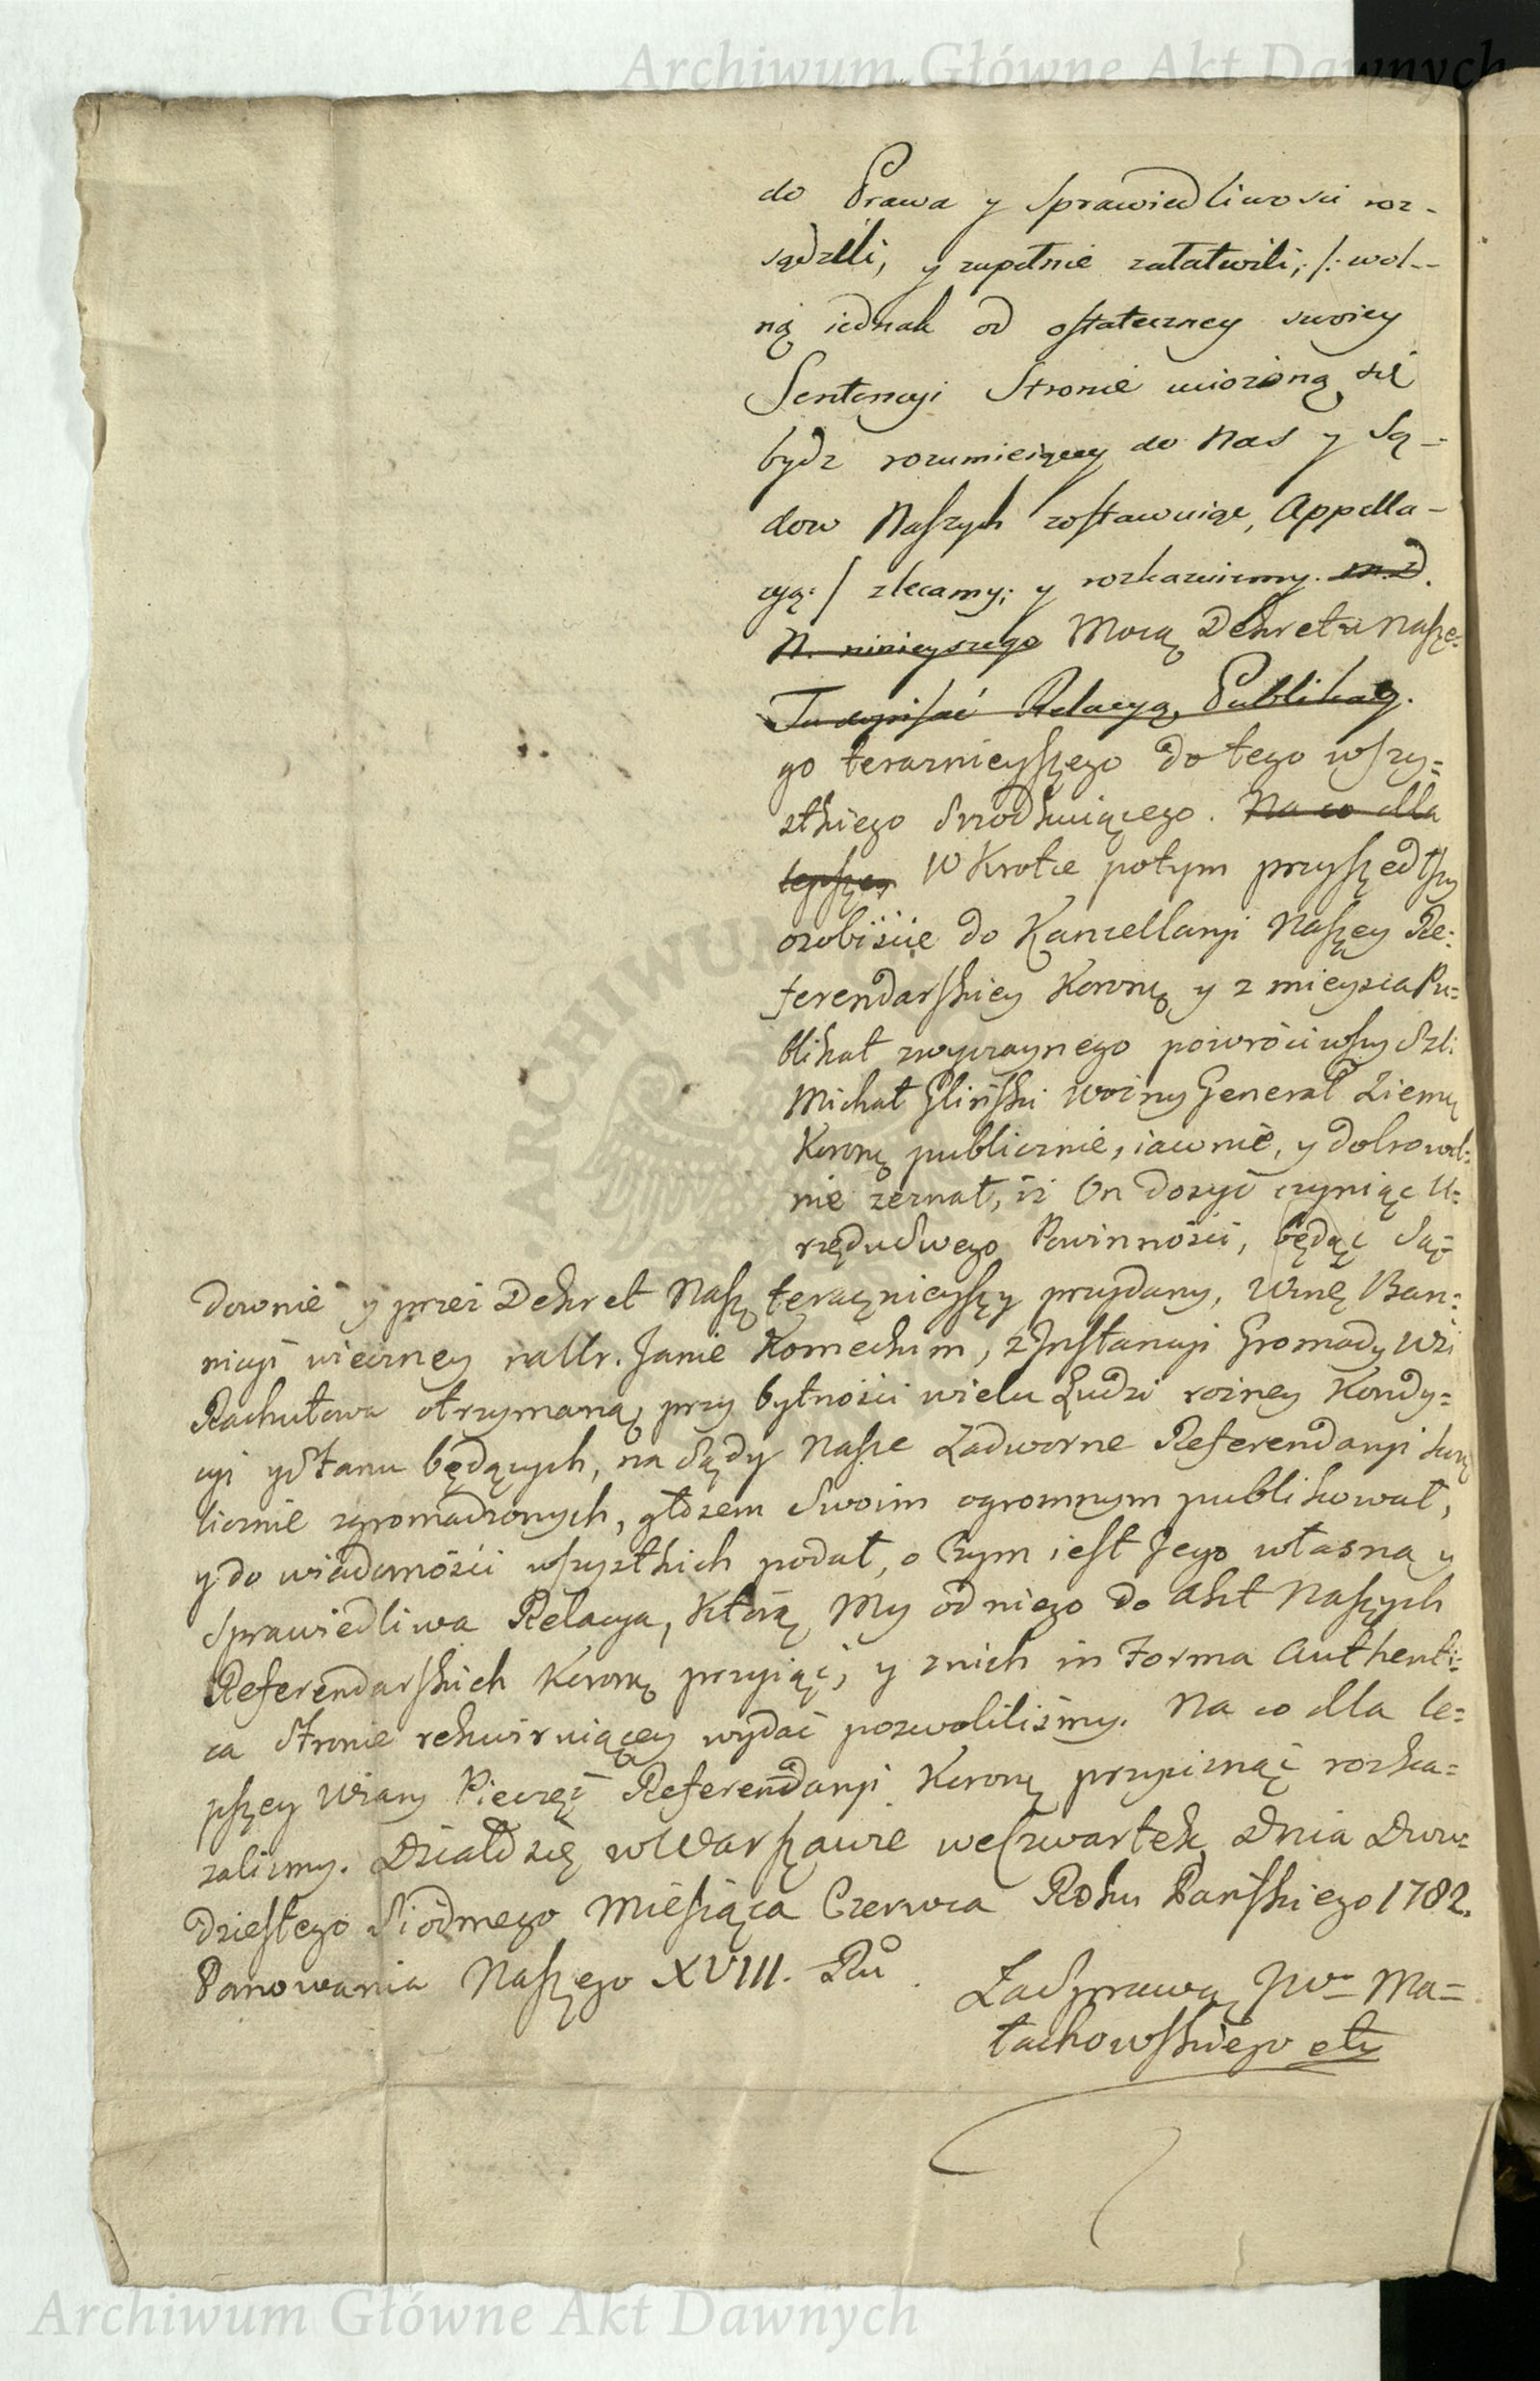 Archiwum Główne Akt Dawnych
do Prawa y sprawiedliwosci roz-
sądzili, y zupełnie załatwili; /: wol-
ną iednak od ostateczney swoiey
Sentencyi Stronie uciążoną się
bydź rozumieiącey do Nas y Są-
dow Naszych zostawuiąc, Appella-
cyą: / zlecamy; y rozkazuiemy. m. d.
N. ninieyszego Mocą Dekretu Nasze-
Tu wpisać Relacyą, Publikaty.
go teraznieyszego do tego wszy=
stkiego Srzodkuiącego. Na co dla
lepszey W Krotce potym przyszedłszy
ozobiście do Kancellaryi Naszey Re=
ferendarskiey Koronę y z mieysca Pu=
blikat zwyczaynego powróciwszy Szl:
Michał Gliński Woźny Generał Ziemę
Koronę publicznie, iawnie, y dobrowol=
nie zeznał, iż On dosyć czyniąc U=
rzędu Swego Powinności, będąc Są=
downie y przez Dekret Nasz teraznieyszy przydany, Winę Ban=
nicyi wieczney na Ur. Janie Komeckim, z Jnstancyi Gromady Wsi
Rachutowa otrzymaną, przy bytności wielu Ludzi rożney Kondy=
cyi y Stanu będących, na Sądy Nasze Zadworne Referendaryi Korę
licznie zgromadzonych, głosem Swoim ogromnym publikował,
y do wiadomości wszystkich podał, o Czym iest Jego własna y
Sprawiedliwa Relacya, Którą My od niego do Akt Naszych
Referendarskich Koronę przyiąć, y z nich in Forma Authenti=
ca Stronie rekwiruiącey wydać pozwoliliśmy. Na co dla le=
pszey Wiary Pieczęć Referendaryi Koronę przycisnąć rozka=
zaliśmy. Działo się w Warszawie we Czwartek, Dnia Dwu=
dziestego Siodmego Miesiąca Czerwca Roku Pańskiego 1782.
Panowania Naszego XVIII. Ru.
Za Sprawą JW Ma=
łachowskiego etc
Archiwum Główne Akt Dawnych